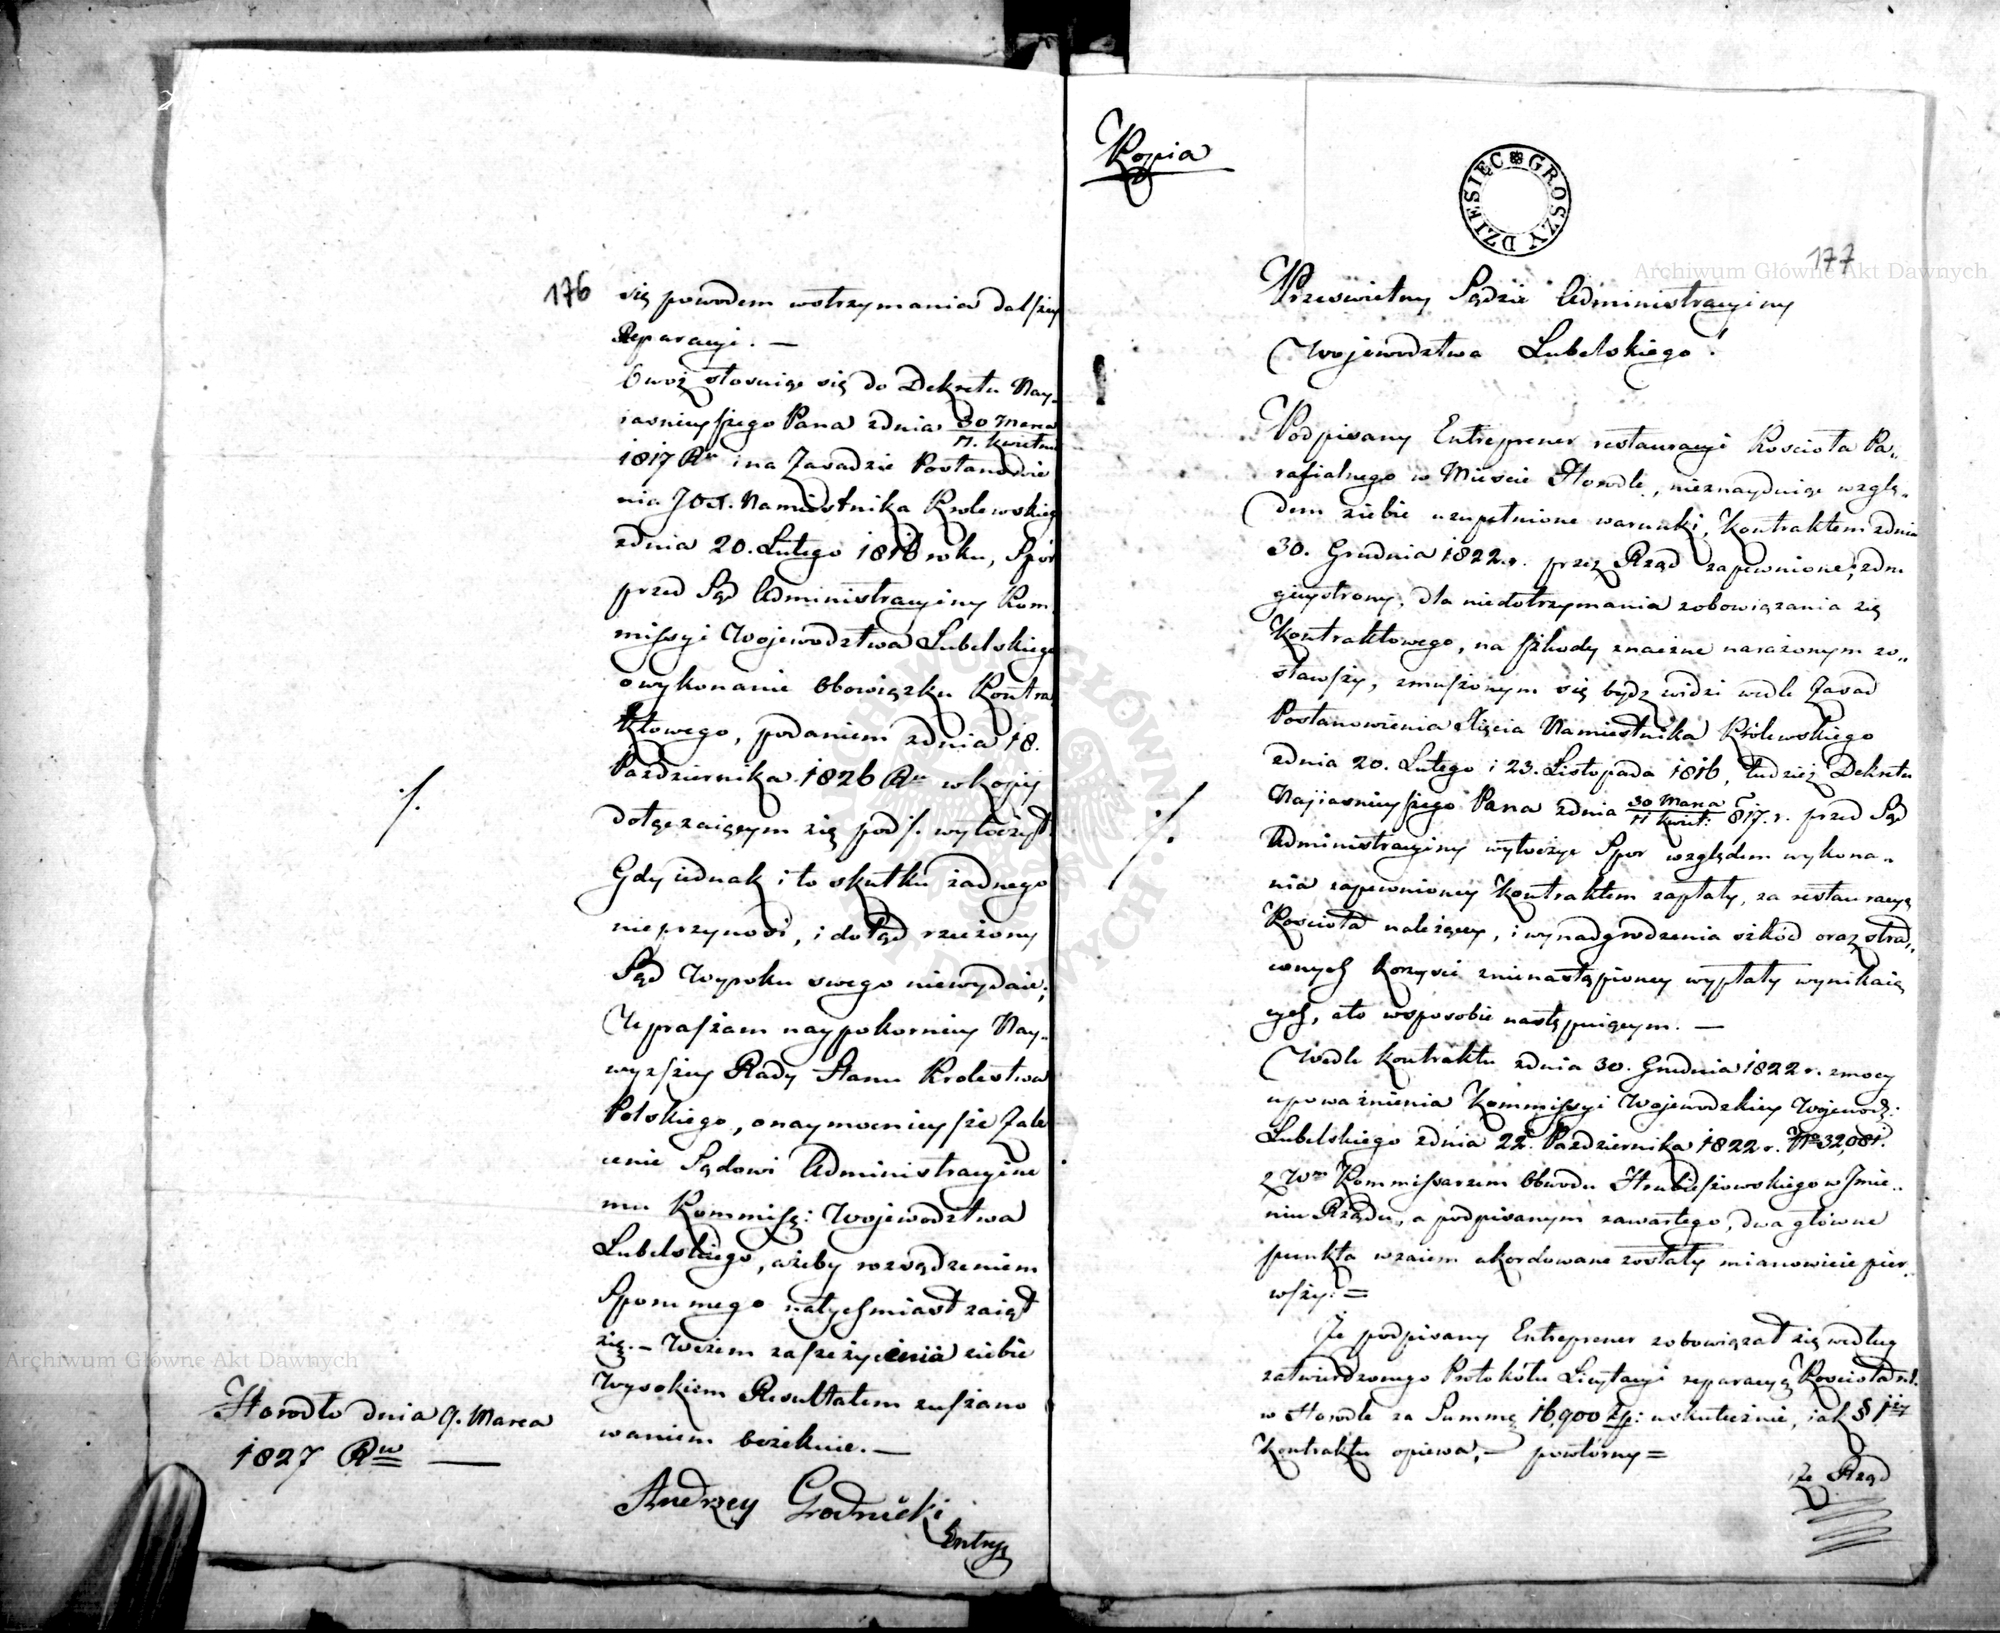 176
się powodem wstrzymania dalszey
Reparacyi. —
Owoż stosuiąc się do Dekretu Nay-
iasnieyszego Pana zdnia 30 Marca
11. Kwietnia
1817 Ru i na Zasadzie Postanowie
nia JOX. Namiestnika Krolewskieg
zdnia 20. Lutego 1816 roku, Spór
przed Sąd Administracyiny Kom
missyi Woiewodztwa Lubelskiego
o wykonanie Obowiązku Kontra
ktowego, podaniem zdnia 18.
Pazdziernika 1826 Ru w kopij
dołączaiącym się pod ./. wytoczył
./.
Gdy iednak i to skutku żadnego
nieprzynosi, i dotąd rzeczony
Sąd Wyroku swego niewydaie;
Upraszam naypokorniey Nay-
wyższey Rady Stanu Krolestwa
Polskiego, o naymocnieysze Zale
cenie Sądowi Administracyine
mu Kommissi: Woiewodztwa
Lubelskiego, ażeby rozsądzeniem
Spornego natychmiast zaiął
się. — Wczem zaszczycenia siebie
Wysokiem Resultatem zuszano
waniem bezieknie. —
Horodło dnia 9. Marca
1827 Ru —
Andrzey Grodnicki
Entrep
Kopia
DZIESIĘC GROSZY
177
Przeswietny Sądzie Administracyiny
Woiewodztwa Lubelskiego!
Podpisany Entreprener restauracyi Koscioła Pa„
rafialnego w Miescie Horodle, nieznayduiąc wzglę„
dem siebie uzupełnione warunki, Kontraktem zdnia
30. Grudnia 1822.r. przez Rząd zapewnione; zdru
gieystrony, dla niedotrzymania zobowiązania się
Kontraktowego, na szkody znaczne narażonym zo„
stawszy, zmuszonym się bydź widzi wedle Zasad
Postanowienia Xięcia Namiestnika Królewskiego
zdnia 20. Lutego i 23. Listopada 1816, tudzież Dekretu
Nayiasnieyszego Pana zdnia 30 Marca 817. r. przed Sąd
11 Kwiet:
./.
Administracyiny wytoczyć Spor względem wykona„
nia zapewnioney Kontraktem zapłaty, za restauracyą
Kościoła należącey, i wynadgrodzenia szkód oraz stra„
conych korzysci znienastąpioney wypłaty wynikaią
cych, a to w sposobie następuiącym. —
Wedle Kontraktu zdnia 30. Grudnia 1822 r. zmocy
upoważnienia Kommissyi Woiewodzkiey Woiewodz:
Lubelskiego zdnia 22. Pazdziernika 1822 r. No 32,081.
z Wm Kommissarzem Obwodu Hrubieszowskiego w Jmie„
niu Rządu, a podpisanym zawartego, dwa główne
punkta wzaiem akordowane zostały mianowicie pier„
wszy: =
Że podpisany Entreprener zobowiązał się według
zatwierdzonego Protokółu Licytacyi reparacyą Kościoła r.l.
w Horodle za Summę 16,900 Zp: uskutecznić, iak § 1szy
Kontraktu opiewa, — powtórny =
że Rząd
Archiwum Główne Akt Dawnych
Archiwum Główne Akt Dawnych
ARCHIWUM GŁÓWNE AKT DAWNYCH